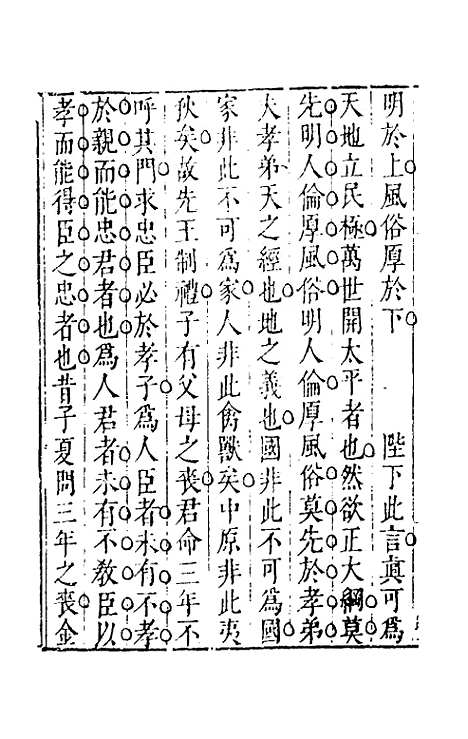 明於上風俗厚於下　　　陛下此言眞可爲
天地立民極萬世開太平者也然欲正大綱莫
先明人倫厚風俗明人倫厚風俗莫先於孝弟
夫孝弟天之經也地之義也國非此不可爲國
家非此不可爲家人非此禽獸矣中原非此夷
狄矣故先王制禮子有父母之喪君命三年不
呼其門求忠臣必於孝子爲人臣者未有不孝
於親而能忠君者也爲人君者未有不敎臣以
孝而能得臣之忠者也昔子夏問三年之喪金